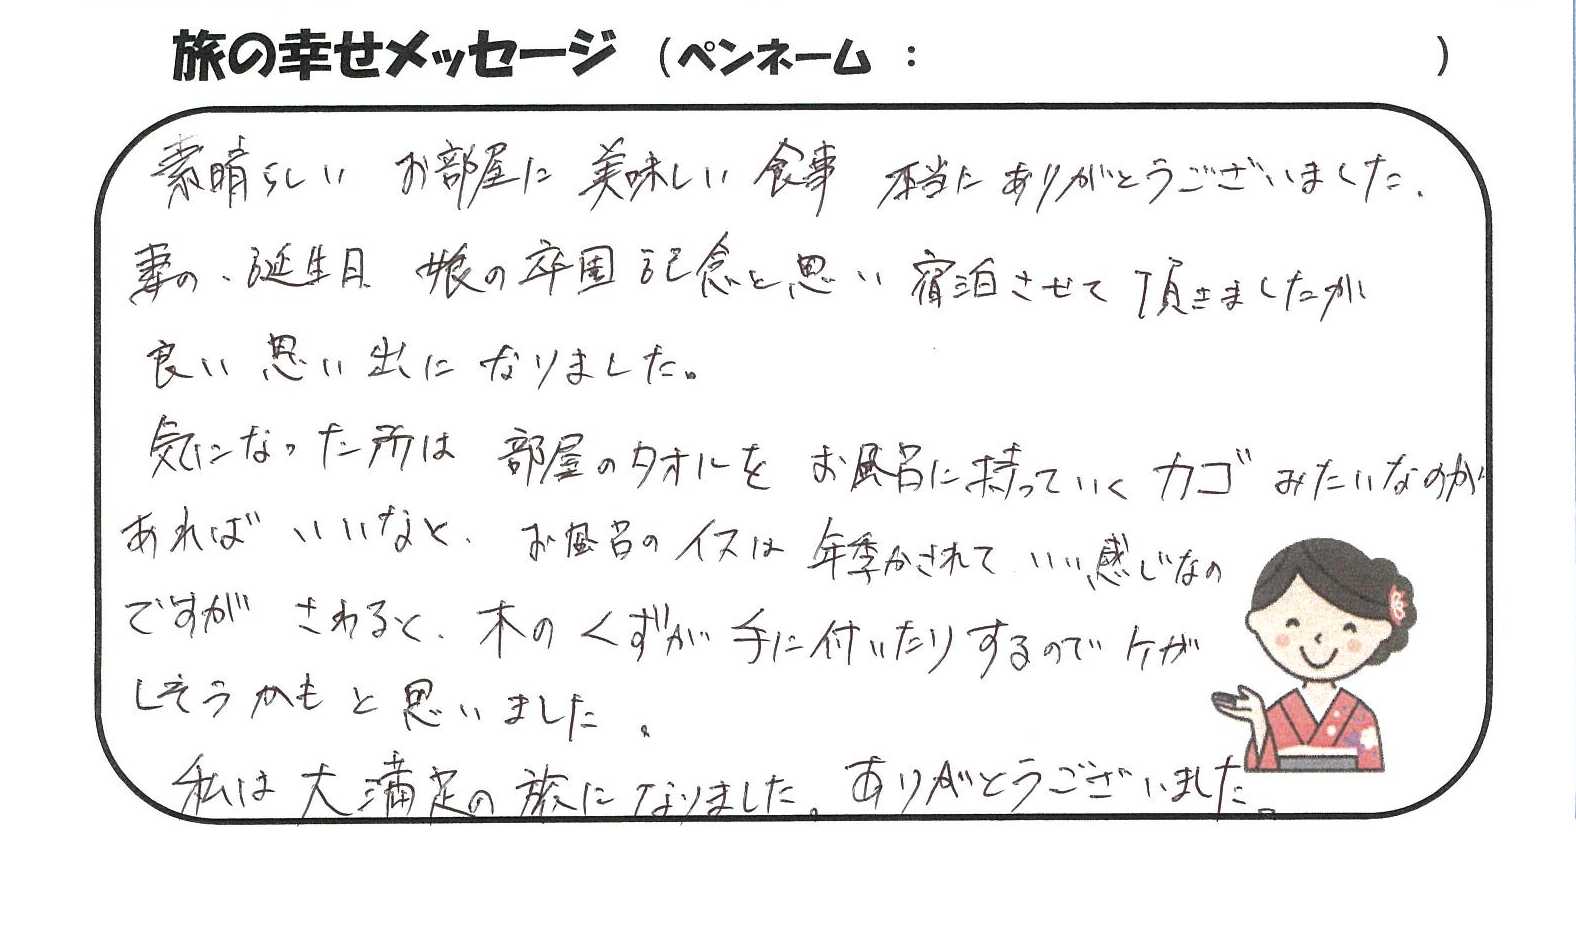 旅の幸せメッセージ (ペンネーム : )
素晴らしい お部屋に 美味しい 食事 本当に ありがとうございました.
妻の、誕生日 娘の卒園記念と思い 宿泊させて頂きましたが
良い 思い出に なりました。
気になった所は 部屋のタオルを お風呂に持っていく カゴ みたいなのが
あれば いいなと、 お風呂の イスは 年季かされて いい感じなの
ですが さわると、木の くずが 手に付いたりするので ケガ
しそうかも と 思いました 。
私は 大満足の 旅に なりました。ありがとうございました。